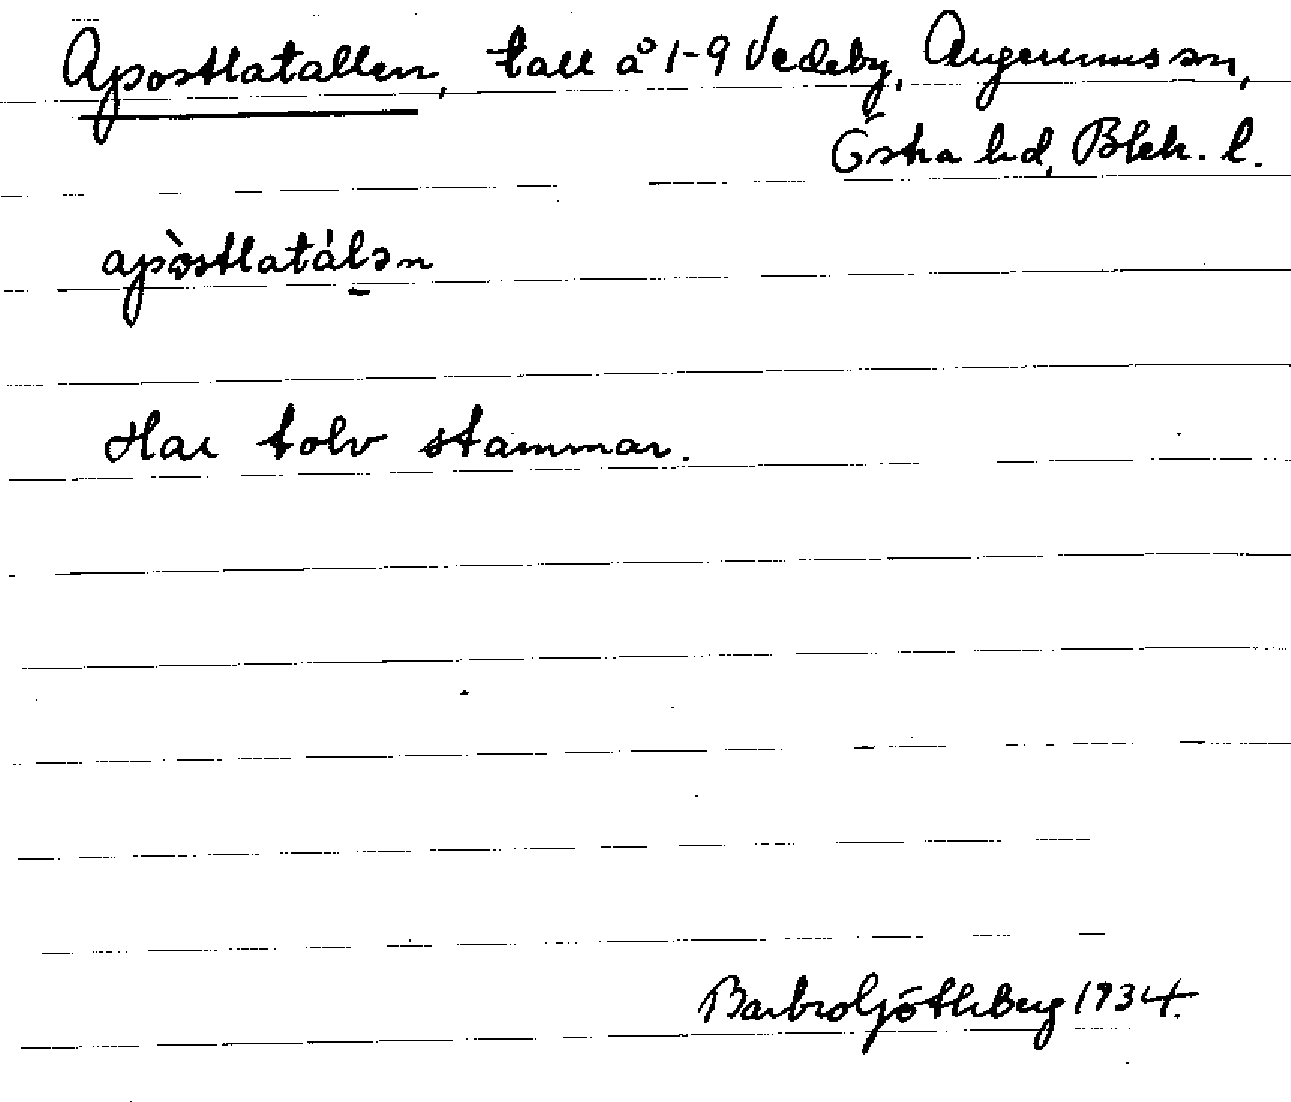 Apostlatallen, tall å 1-9 Vedeby, Augerums sn,
Östra hd, Blek. l.
apòstlatálən
Har tolv stammar.
Barbro Göthberg 1934.